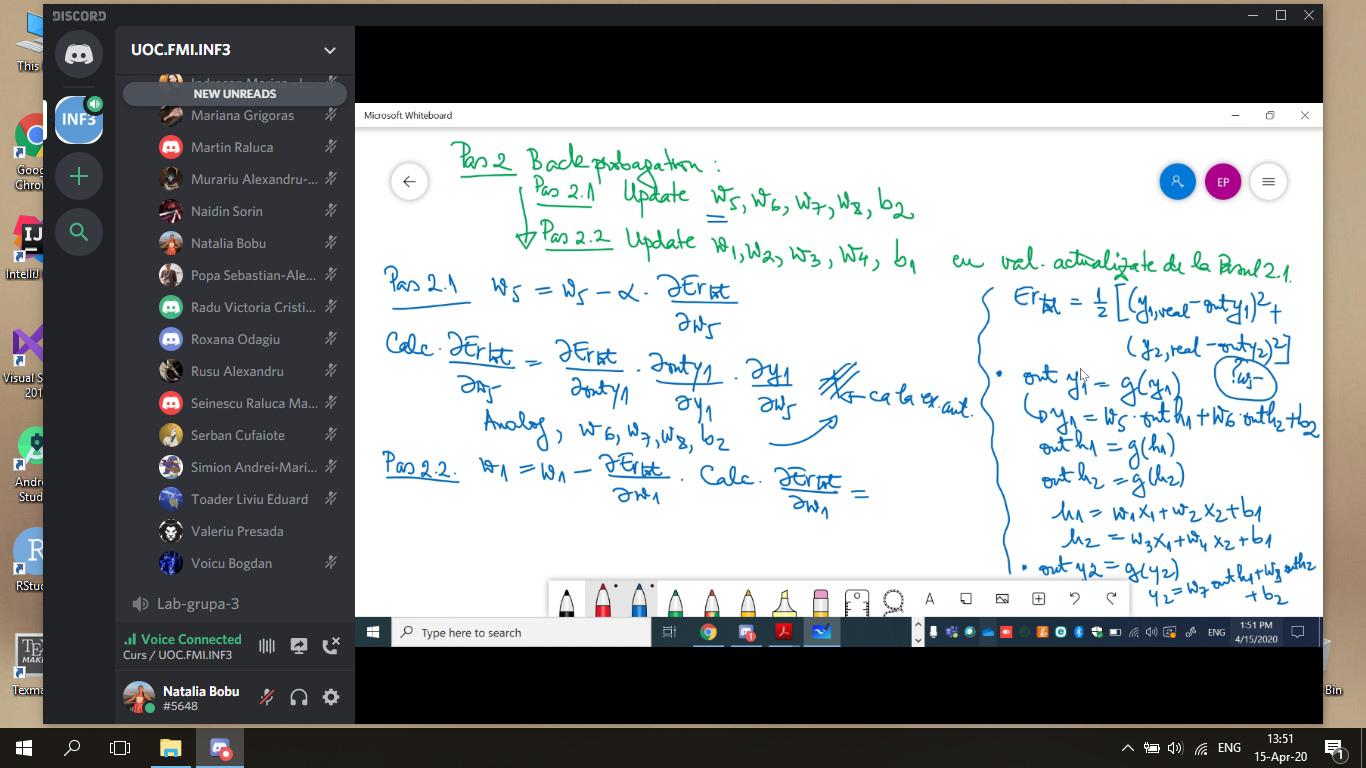 DISCORD
This
UOC.FMI.INF3
NEW UNREADS
INF3
Mariana Grigoras
Martin Raluca
Murariu Alexandru-...
Naidin Sorin
Natalia Bobu
Popa Sebastian-Ale...
Radu Victoria Cristi...
Roxana Odagiu
Rusu Alexandru
Seinescu Raluca Ma...
Serban Cufaiote
Simion Andrei-Mari...
Toader Liviu Eduard
Valeriu Presada
Voicu Bogdan
Lab-grupa-3
Voice Connected
Curs / UOC.FMI.INF3
Natalia Bobu
#5648
Goog
Chro
IntelliJ
Visual S
201
Andr
Stud
RStud
Texma
Bin
Microsoft Whiteboard
EP
Pas 2 Backpropagation :
Pas 2.1 Update w5, w6, w7, w8, b2
Pas 2.2 Update w1, w2, w3, w4, b1 cu val. actualizate de la Pasul 2.1.
Pas 2.1 w5 = w5 - α · ∂Ertot/∂w5
Calc. ∂Ertot/∂w5 = ∂Ertot/∂outy1 · ∂outy1/∂y1 · ∂y1/∂w5 ← ca la ex. ant.
Analog, w6, w7, w8, b2
Pas 2.2. w1 = w1 - ∂Ertot/∂w1 . Calc. ∂Ertot/∂w1 =
Ertot = 1/2 [(y1,real - outy1)² +
(y2,real - outy2)²]
• out y1 = g(y1)
y1 = w5 · outh1 + w6 · outh2 + b2
outh1 = g(h1)
outh2 = g(h2)
h1 = w1x1 + w2x2 + b1
h2 = w3x1 + w4x2 + b1
• out y2 = g(y2)
y2 = w7 outh1 + w8 outh2
+ b2
Type here to search
ENG
1:51 PM
4/15/2020
ENG
13:51
15-Apr-20
1